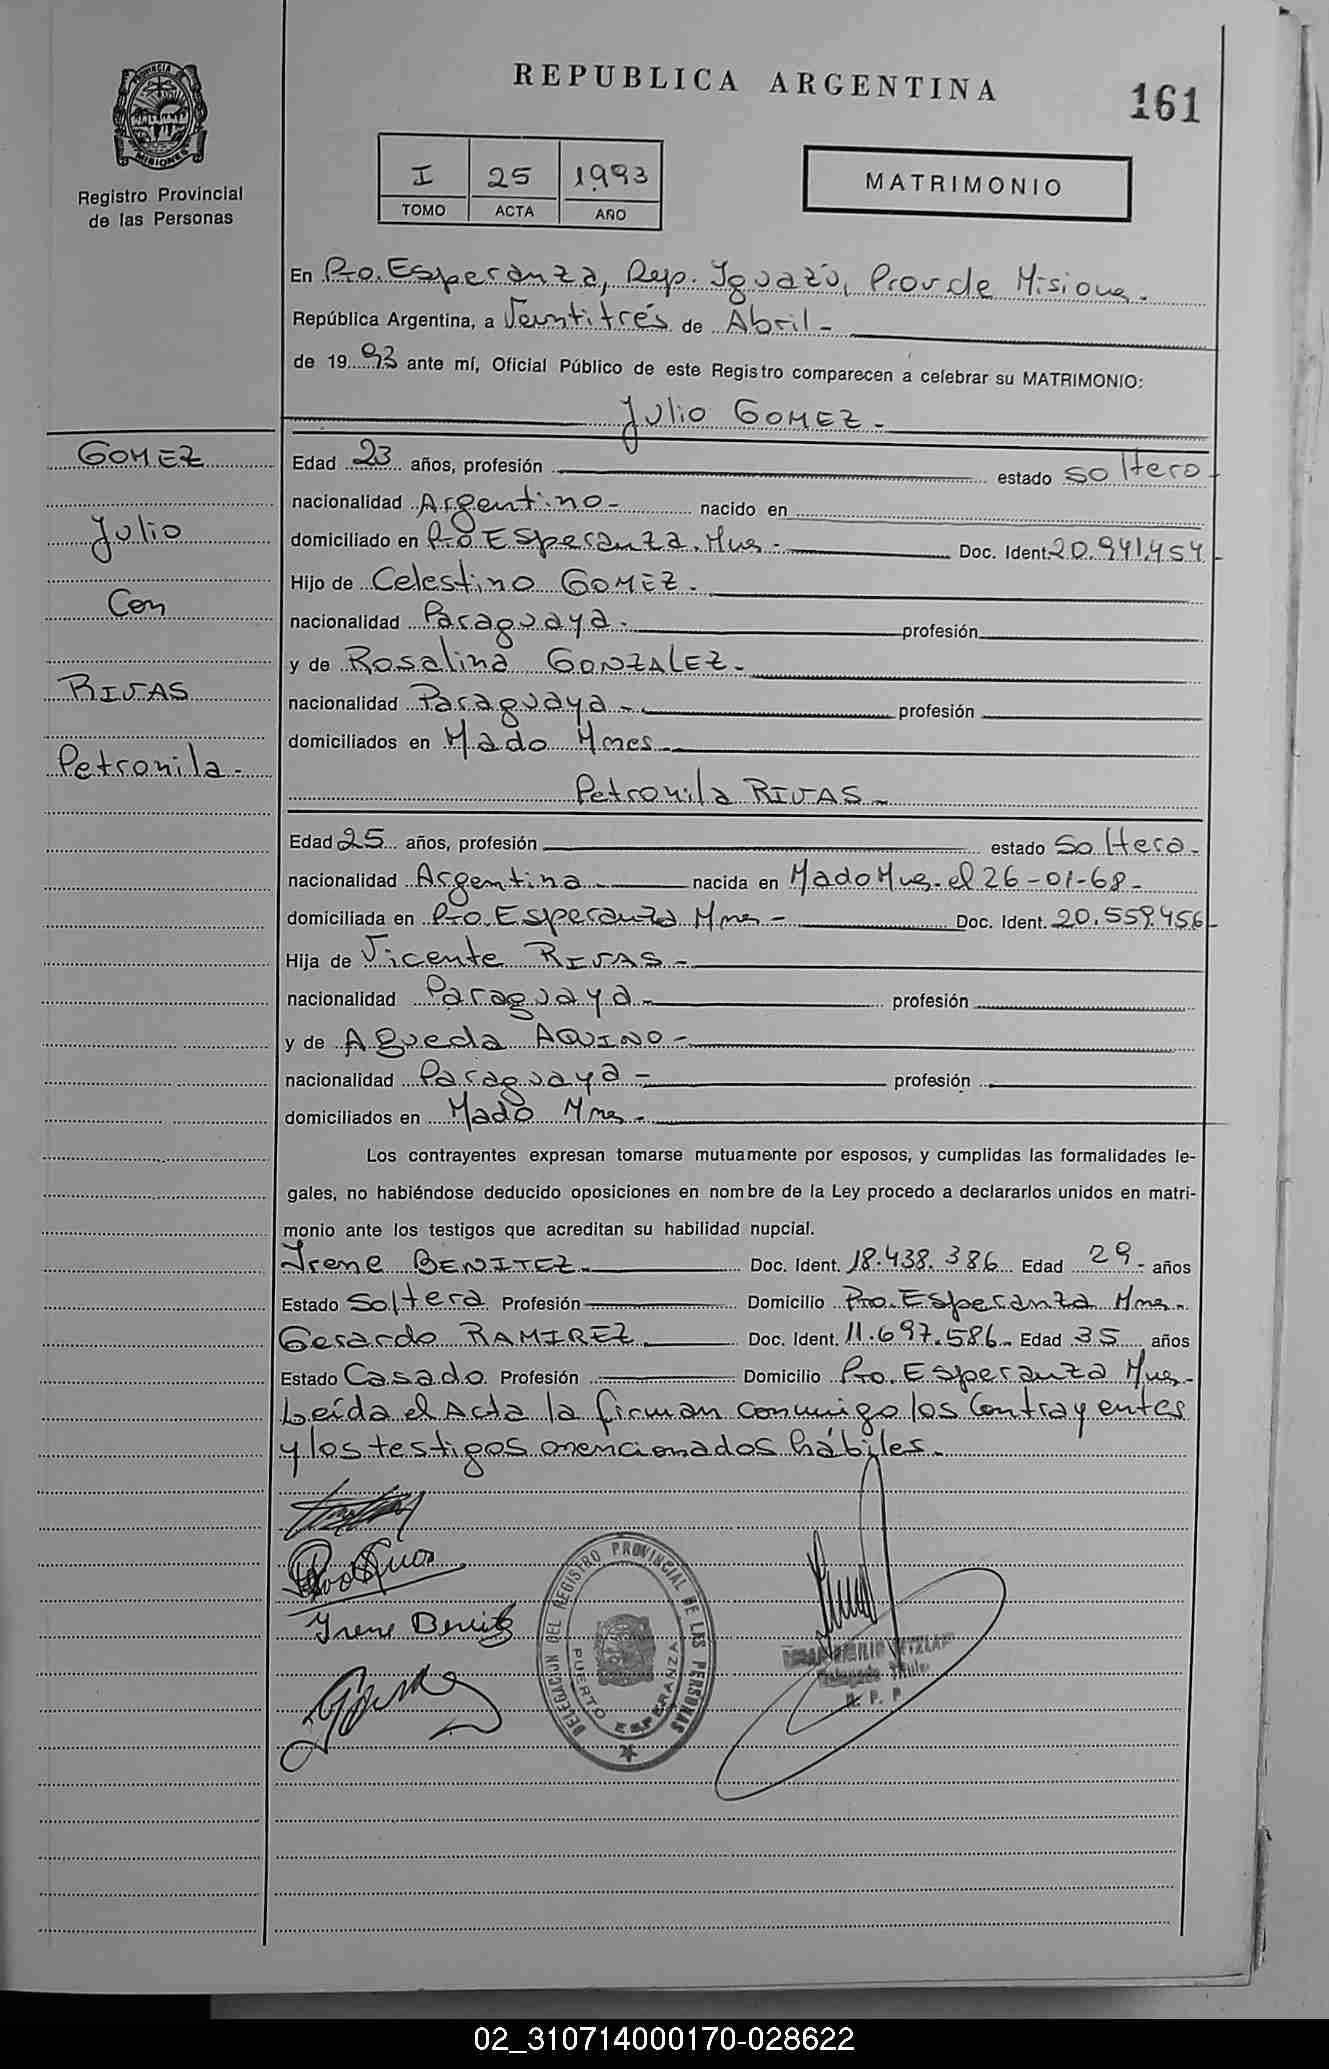 REPUBLICA ARGENTINA
161
PROVINCIA DE
MISIONES
Registro Provincial
de las Personas
I 25 1993
TOMO ACTA AÑO
MATRIMONIO
En Pto. Esperanza, Dep. Iguazú, Prov de Misiones.
República Argentina, a Veintitrés de Abril -
de 1993 ante mí, Oficial Público de este Registro comparecen a celebrar su MATRIMONIO:
Julio GOMEZ -
GOMEZ
Julio
Con
RIVAS
Petronila -
Edad 23 años, profesión estado soltero
nacionalidad Argentino - nacido en
domiciliado en Pto Esperanza. Mnes - Doc. Ident. 20.941.454
Hijo de Celestino GOMEZ -
nacionalidad Paraguaya - profesión
y de Rosalina GONZALEZ -
nacionalidad Paraguaya - profesión
domiciliados en Mado Mnes -
Petronila RIVAS -
Edad 25 años, profesión estado Soltera -
nacionalidad Argentina - nacida en Mado Mnes. el 26-01-68 -
domiciliada en Pto. Esperanza Mnes - Doc. Ident. 20.559.456
Hija de Vicente RIVAS -
nacionalidad Paraguaya - profesión
y de Agueda AQUINO -
nacionalidad Paraguaya - profesión
domiciliados en Mado Mnes -
Los contrayentes expresan tomarse mutuamente por esposos, y cumplidas las formalidades le-
gales, no habiéndose deducido oposiciones en nombre de la Ley procedo a declararlos unidos en matri-
monio ante los testigos que acreditan su habilidad nupcial.
Irene BENITEZ - Doc. Ident. 18.438.386 Edad 29 - años
Estado Soltera Profesión Domicilio Pto. Esperanza Mnes -
Gerardo RAMIREZ Doc. Ident. 11.697.586 - Edad 35 años
Estado Casado Profesión Domicilio Pto. Esperanza Mnes -
Leída el Acta la firman conmigo los Contrayentes
y los testigos mencionados hábiles -
Irene Benitez
DELEGACION DEL REGISTRO PROVINCIAL DE LAS PERSONAS
PUERTO ESPERANZA
Delegado Titular
R. P. P.
02_310714000170-028622